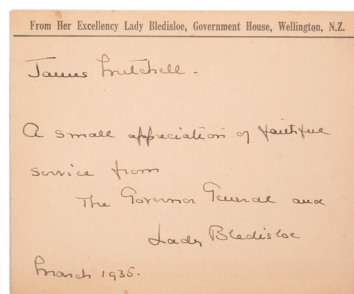 From Her Excellency Lady Bledisloe, Government House, Wellington, N.Z.
James Mitchell.
A small appreciation of faithful
service from
The Governor General and
Lady Bledisloe
March 1935.